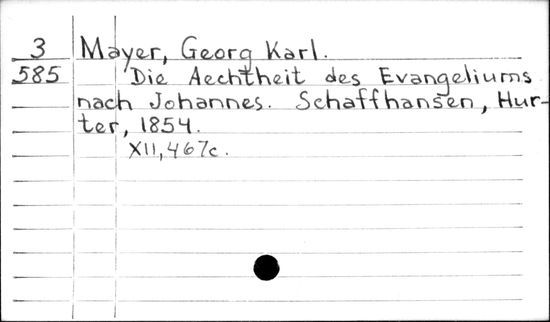 3 Mayer, Georg Karl.
585 Die Aechtheit des Evangeliums
nach Johannes. Schaffhansen, Hur-
ter, 1854.
XII, 467c.